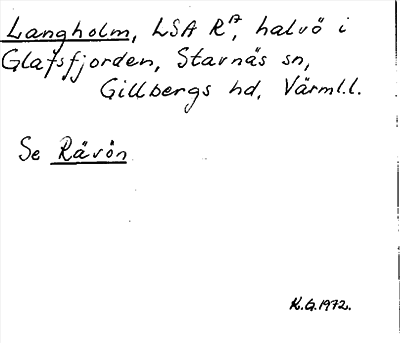 Langholm, LSA R^A, halvö i
Glafsfjorden, Stavnäs sn,
Gillbergs hd, Värml.l.
Se Rävön
K.G.1972.